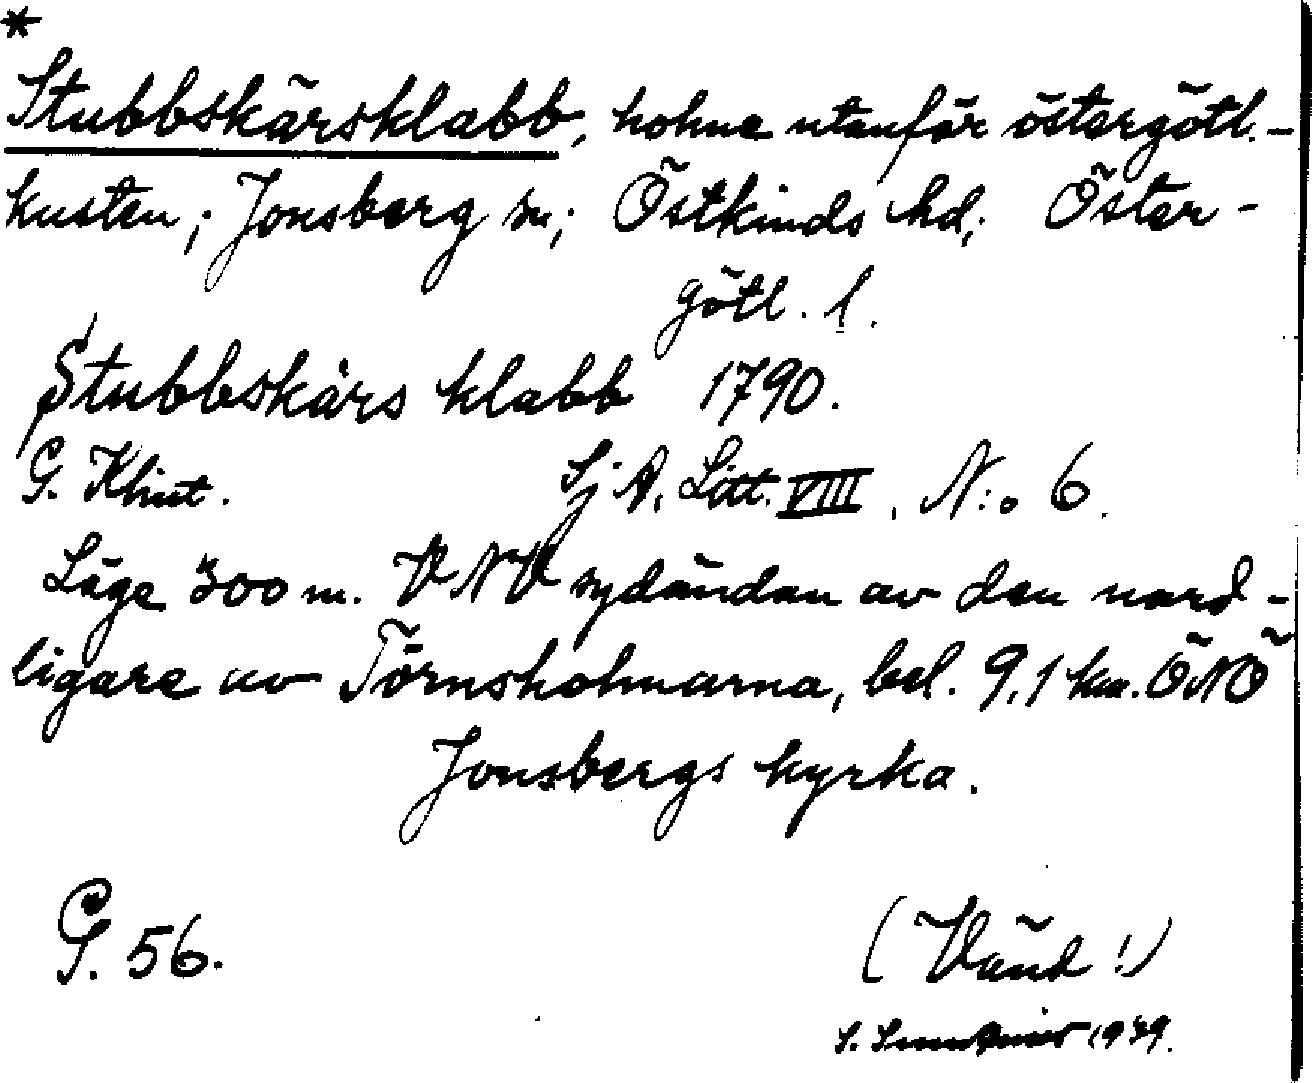 *
Stubbskärsklabb, holme utanför östergötl.-
kusten; Jonsberg sn; Östkinds hd; Öster-
götl. l.
Stubbskärs klabb 1790.
G. Klint. Sj A. Litt. VIII, N:o 6.
Läge 300 m. VNV sydändan av den nord-
ligare av Törnsholmarna, bel. 9,1 km. ÖNÖ
Jonsbergs kyrka.
G. 56. (Vänd!)
S. 1939.